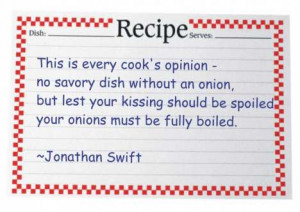 Dish: Recipe Serves:
This is every cook's opinion -
no savory dish without an onion,
but lest your kissing should be spoiled
your onions must be fully boiled.
~Jonathan Swift